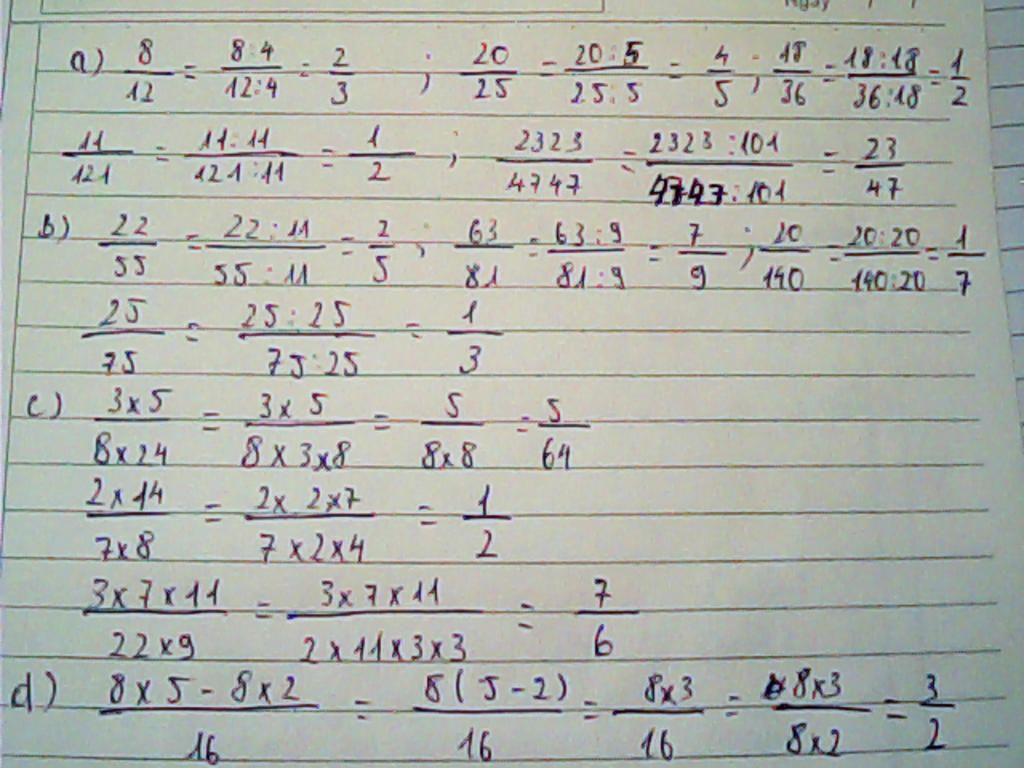 Ngày / /
a) 8/12 = 8:4/12:4 = 2/3 ; 20/25 = 20:5/25:5 = 4/5 ; 18/36 = 18:18/36:18 = 1/2
11/121 = 11:11/121:11 = 1/2 ; 2323/4747 = 2323:101/4747:101 = 23/47
b) 22/55 = 22:11/55:11 = 2/5 ; 63/81 = 63:9/81:9 = 7/9 ; 20/140 = 20:20/140:20 = 1/7
25/75 = 25:25/75:25 = 1/3
c) 3x5/8x24 = 3x5/8x3x8 = 5/8x8 = 5/64
2x14/7x8 = 2x2x7/7x2x4 = 1/2
3x7x11/22x9 = 3x7x11/2x11x3x3 = 7/6
d) 8x5-8x2/16 = 8(5-2)/16 = 8x3/16 = 8x3/8x2 = 3/2